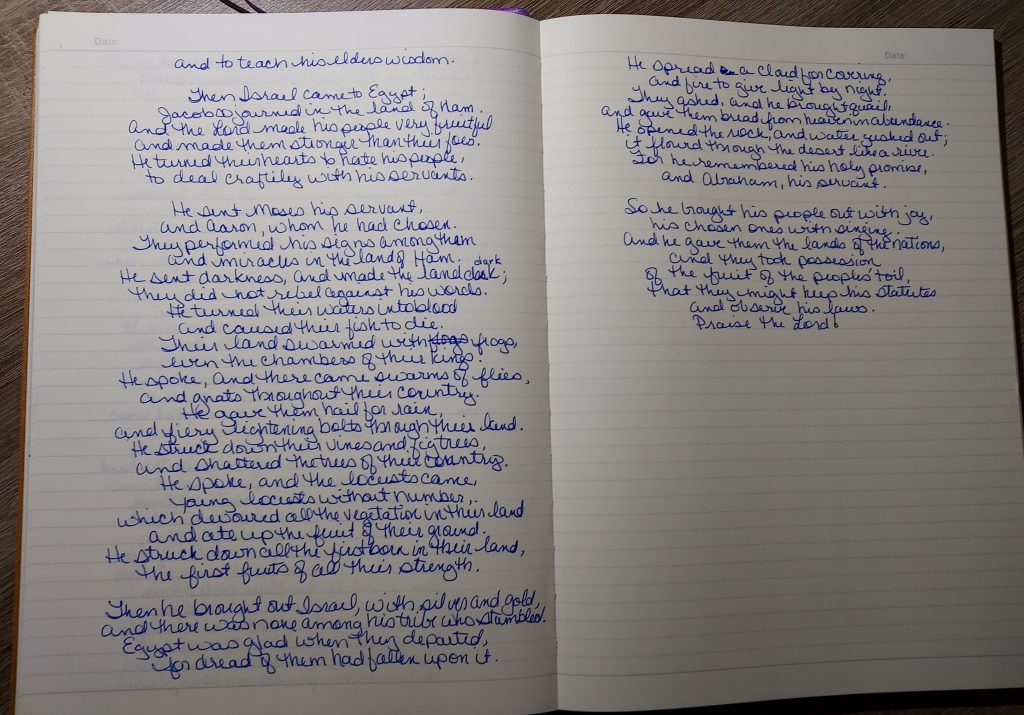 Date:
and to teach his elders wisdom.
Then Israel came to Egypt;
Jacob sojourned in the land of Ham.
And the Lord made his people very fruitful
and made them stronger than their foes.
He turned their hearts to hate his people,
to deal craftily with his servants.
He sent Moses his servant,
and Aaron, whom he had chosen.
They performed his signs among them
and miracles in the land of Ham.
dark
He sent darkness, and made the land dark;
they did not rebel against his words.
He turned their waters into blood
and caused their fish to die.
Their land swarmed with frogs frogs,
even the chambers of their kings.
He spoke, and there came swarms of flies,
and gnats throughout their country.
He gave them hail for rain,
and fiery lightening bolts through their land.
He struck down their vines and fig trees,
and shattered the trees of their country.
He spoke, and the locusts came,
young locusts without number,
which devoured all the vegetation in their land
and ate up the fruit of their ground.
He struck down all the firstborn in their land,
the first fruits of all their strength.
Then he brought out Israel, with silver and gold,
and there was none among his tribe who stumbled.
Egypt was glad when they departed,
for dread of them had fallen upon it.
Date:
He spread a cloud for covering,
and fire to give light by night.
They asked, and he brought quail,
and gave them bread from heaven in abundance.
He opened the rock, and water gushed out;
it flowed through the desert like a river.
For he remembered his holy promise,
and Abraham, his servant.
So he brought his people out with joy,
his chosen ones with singing.
And he gave them the lands of the nations,
and they took possession
of the fruit of the peoples' toil,
that they might keep his statutes
and observe his laws.
Praise the Lord!